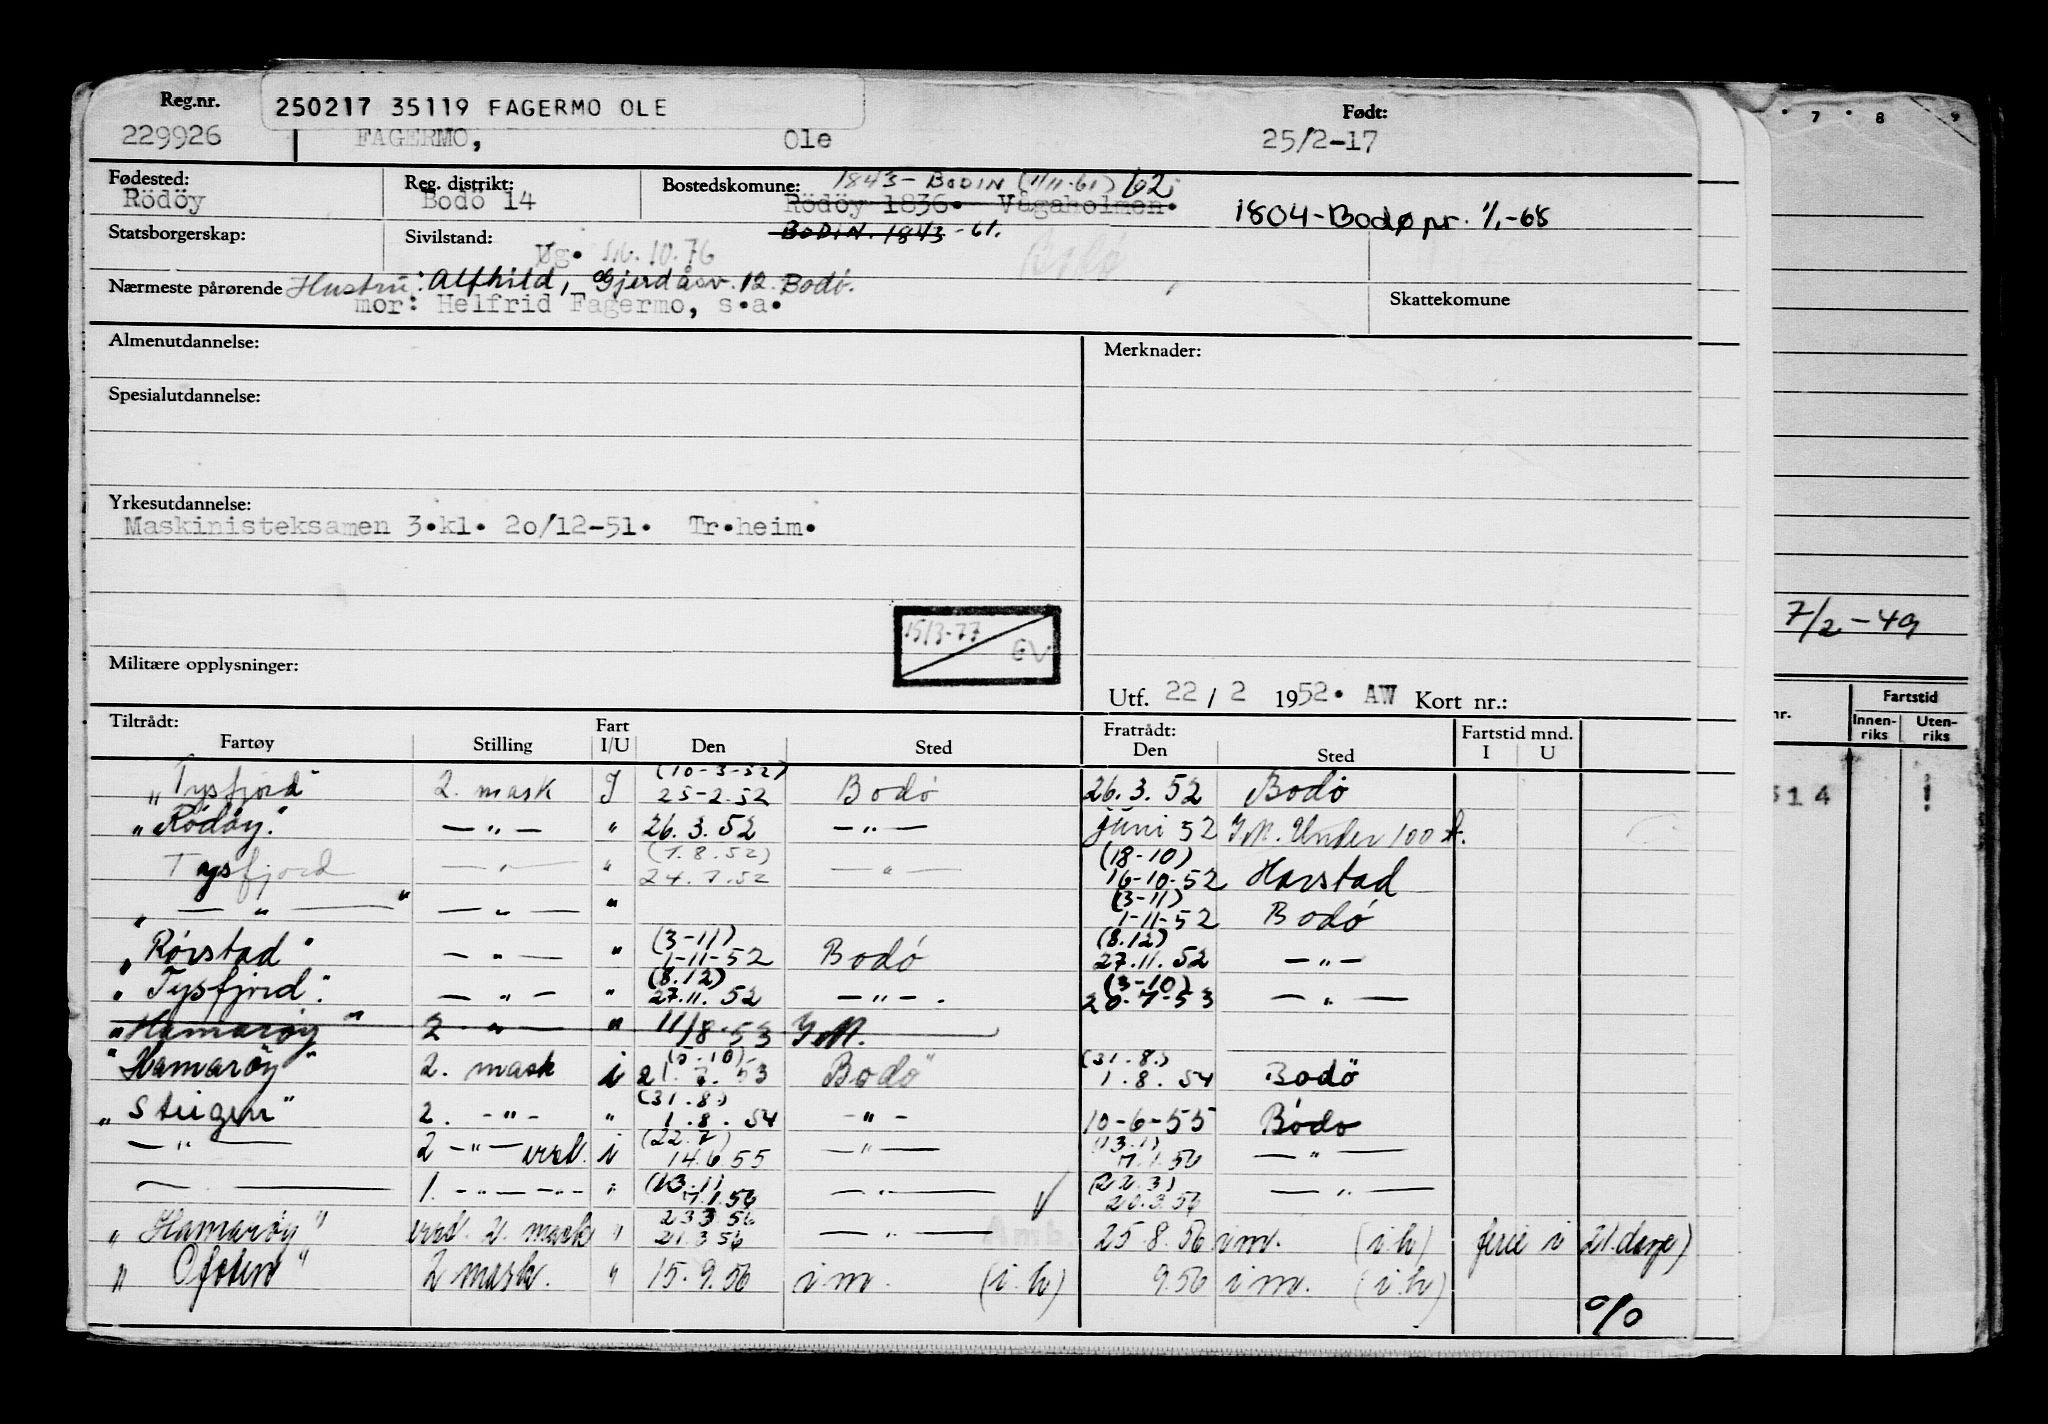 Reg.nr. 250217 35119 FAGERMO OLE Født:
229926 FAGERMO, Ole 25/2-17
Fødested: Reg. distrikt: Bostedskommune: 1843-BODIN (1/11-61) 62
Rödöy Bodö 14 Rödöy 1836. Vågaholmen. 1804-Bodø pr. 1/1-68
Statsborgerskap: Sivilstand: BODIN. 1843-61.
Øg. 10.76 Bodø
Nærmeste pårørende Hustru: Alfhild, Gjerdåsv. 12. Bodø. Skattekomune
mor: Helfrid Fagermo, s.a.
Almenutdannelse: Merknader:
Spesialutdannelse:
Yrkesutdannelse:
Maskinisteksamen 3.kl. 20/12-51. Tr.heim.
15/3-77 EV
Militære opplysninger:
Utf. 22 / 2 1952. AW Kort nr.:
Tiltrådt: Fart Fratrådt: Fartstid mnd.
Fartøy Stilling I/U Den Sted Den Sted I U
(10-3-52)
"Tysfjord" 2. mask I 25-2.52 Bodø 26.3.52 Bodø
"Rödöy." — " — " 26.3.52 — " — juni 52 I.M. Under 100 t.
(7.8.52) (18-10)
Tysfjord — " — " 24.7.52 — " — 16-10-52 Harstad
(3-11)
" — " — " — " — " 1-11-52 Bodø
(3-11) (8.12)
"Rørstad" — " — " 1-11-52 Bodø 27.11.52 — " —
(8.12) (3-10)
"Tysfjord". — " — " 27.11.52 — " — . 20-7-53 — " —
"Hamarøy" 2 — " — " 11/8-53 I.M.
(5.10) (31.8.)
"Hamarøy" 2. mask i 21.7.53 Bodö 1.8.54 Bodö
(31.8.)
"Steigen" 2. — " — " 1.8.54 — " — 10-6-55 Bödo
(22.7) (13.1)
— " — 2 — " — vrd. i 14.6 55 — " — 7.1.56 — " —
(13.1) (22.3)
— 1. — " — " — " 7.1.56 — " — 20.3.56 — " —
23 3 56
"Hamarøy" vrd. 2. mask " 21.3 56 — " — Amb. 25.8.56 i m. (i.h) ferie i 21.dage)
"Ofoten" 2 mask. " 15.9.56 i.m. (i.h) 9.56 i m. (i.h)
o/o
7 8 9
7/2-49
nr. Fartstid
Innenriks Utenriks
514 !